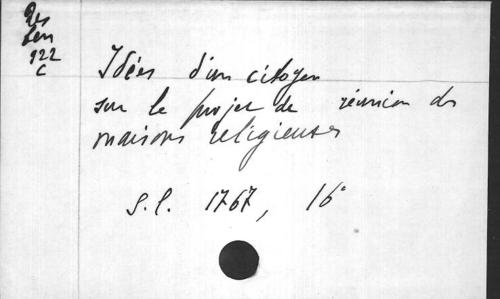 Res
922
C
Idées d'un citoyen
sur le projet de réunion des
maisons religieuses
S.l. 1767, 16°